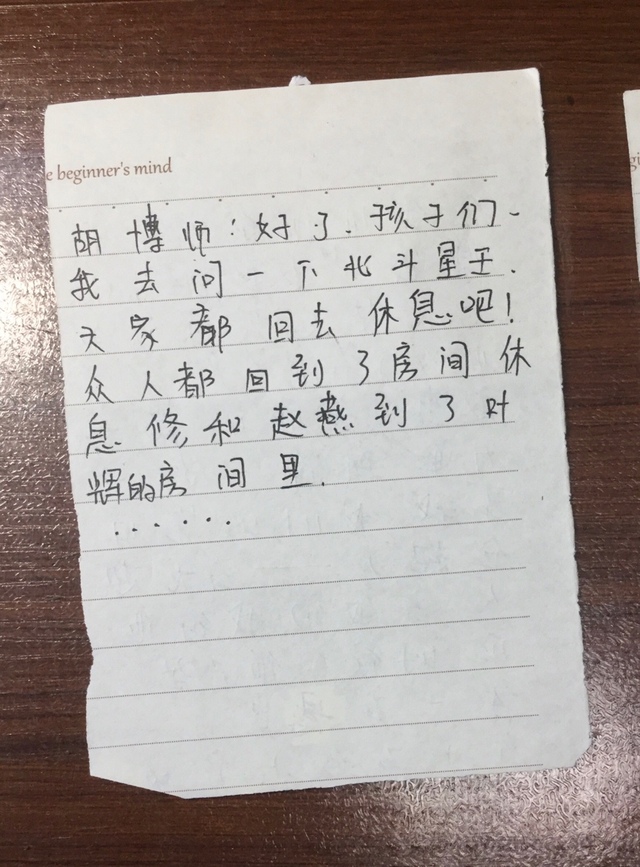 e beginner's mind
胡博师：好了、孩子们、
我去问一下北斗星王.
大家都回去休息吧！
众人都回到了房间休
息修和赵燕到了叶
辉的房间里.
······
gi